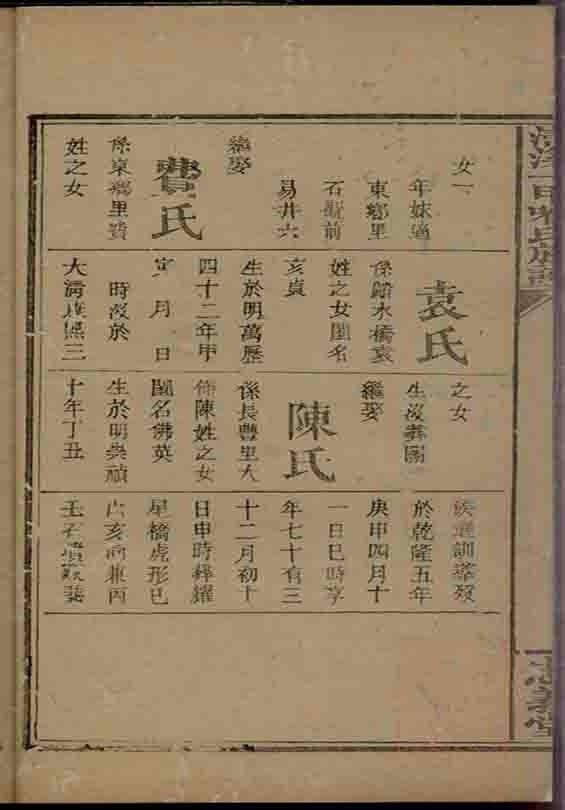 氏族譜
忠義堂
女一
年妹適
東鄉里
石前
易井六
繼娶
費氏
係東鄉里費
姓之女
袁氏
係水橋袁
姓之女閨名
亥貞
生於明萬歷
四十二年甲
寅月日
時歿於
大淸康熙三
之女
生歿葬闕
繼娶
陳氏
係長豐里大
陳姓之女
閨名佛英
生於明崇禎
十年丁丑
族連訓歿
於乾隆五年
庚申四月十
一日巳時享
年七十有三
十二月初十
日申時葬耀
星橋虎形巳
山亥向兼丙
壬石墳